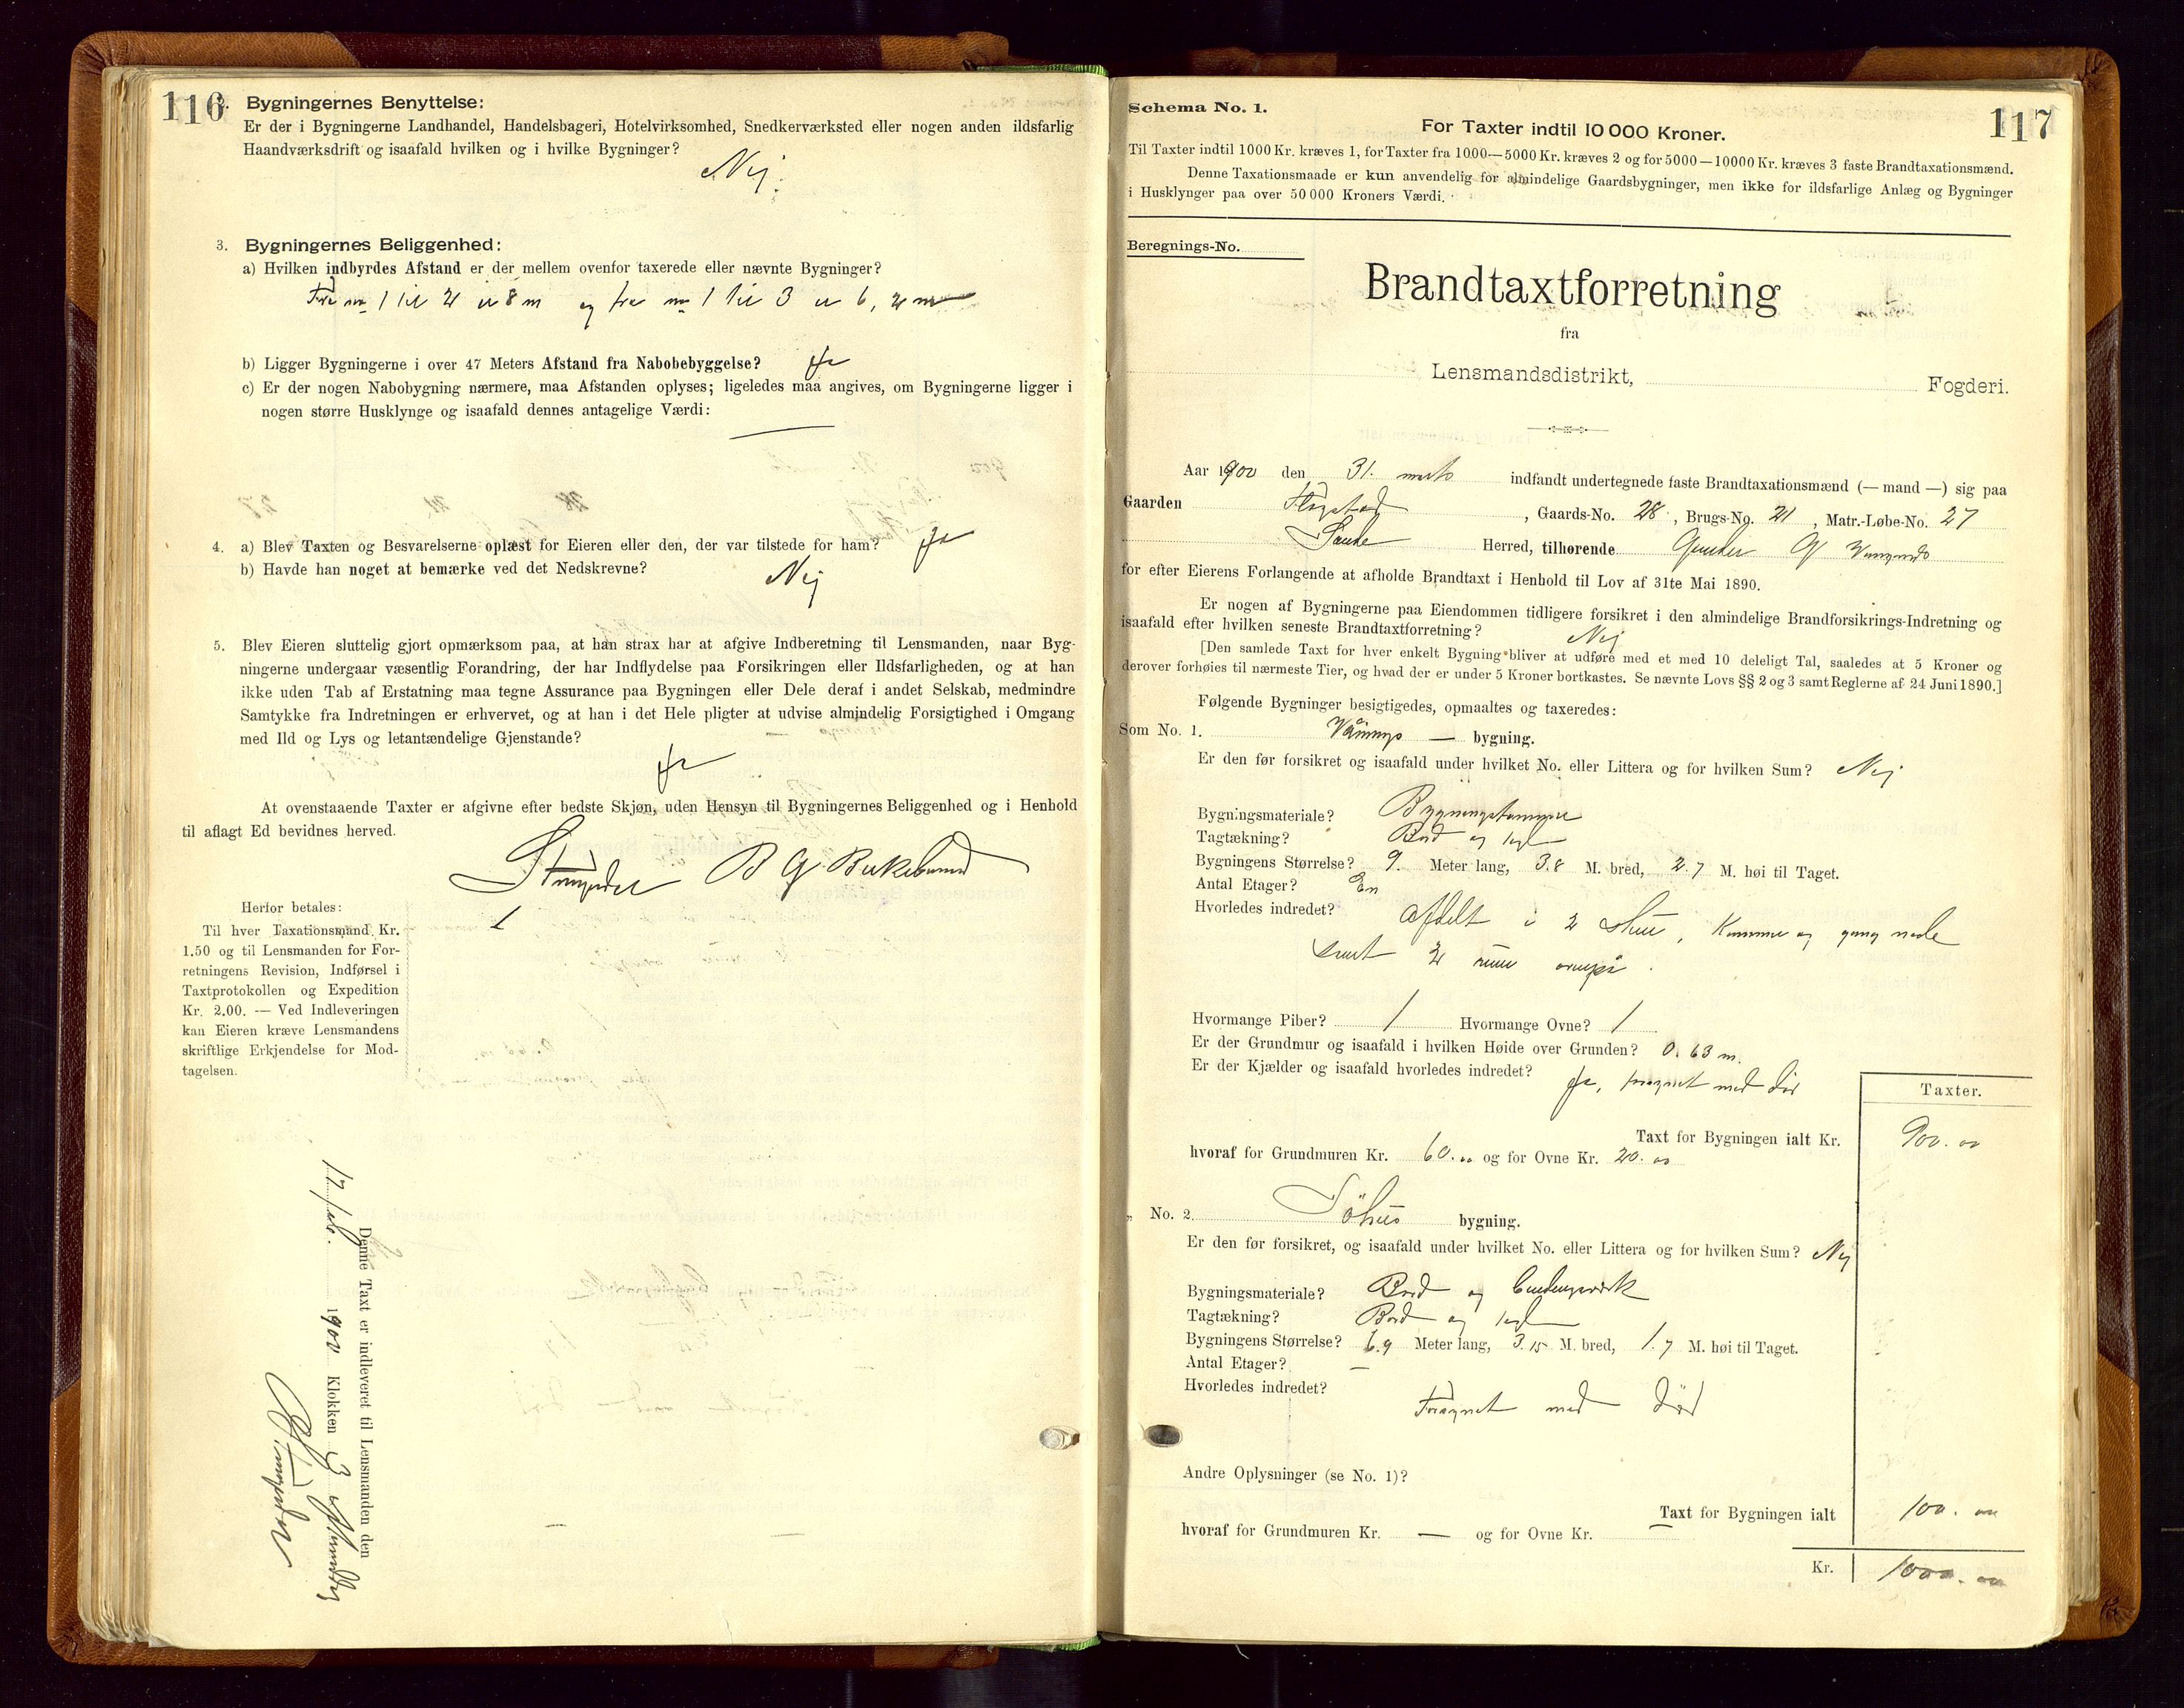 116
2. Bygningernes Benyttelse:
Er der i Bygningerne Landhandel, Handelsbageri, Hotelvirksomhed, Snedkerværksted eller nogen anden ildsfarlig
Haandværksdrift og isaafald hvilken og i hvilke Bygninger?
Nej.
3. Bygningernes Beliggenhed:
a) Hvilken indbyrdes Afstand er der mellem ovenfor taxerede eller nævnte Bygninger?
Fra no 1 til 2 er 8 m og fra no 1 til 3 er 6,2 m
b) Ligger Bygningerne i over 47 Meters Afstand fra Nabobebyggelse? Ja
c) Er der nogen Nabobygning nærmere, maa Afstanden oplyses; ligeledes maa angives, om Bygningerne ligger i
nogen større Husklynge og isaafald dennes antagelige Værdi: —
4. a) Blev Taxten og Besvarelserne oplæst for Eieren eller den, der var tilstede for ham? Ja
b) Havde han noget at bemærke ved det Nedskrevne? Nej
5. Blev Eieren sluttelig gjort opmærksom paa, at han strax har at afgive Indberetning til Lensmanden, naar Byg-
ningerne undergaar væsentlig Forandring, der har Indflydelse paa Forsikringen eller Ildsfarligheden, og at han
ikke uden Tab af Erstatning maa tegne Assurance paa Bygningen eller Dele deraf i andet Selskab, medmindre
Samtykke fra Indretningen er erhvervet, og at han i det Hele pligter at udvise almindelig Forsigtighed i Omgang
med Ild og Lys og letantændelige Gjenstande?
Ja
At ovenstaaende Taxter er afgivne efter bedste Skjøn, uden Hensyn til Bygningernes Beliggenhed og i Henhold
til aflagt Ed bevidnes herved.
B G
Herfor betales:
Til hver Taxationsmand Kr.
1.50 og til Lensmanden for For-
retningens Revision, Indførsel i
Taxtprotokollen og Expedition
Kr. 2.00. — Ved Indleveringen
kan Eieren kræve Lensmandens
skriftlige Erkjendelse for Mod-
tagelsen.
Denne Taxt er indleveret til Lensmanden den
1900 Klokken 3
117
Schema No. 1.
For Taxter indtil 10 000 Kroner.
Til Taxter indtil 1000 Kr. kræves 1, for Taxter fra 1000—5000 Kr. kræves 2 og for 5000—10000 Kr. kræves 3 faste Brandtaxationsmænd.
Denne Taxationsmaade er kun anvendelig for almindelige Gaardsbygninger, men ikke for ildsfarlige Anlæg og Bygninger
i Husklynger paa over 50 000 Kroners Værdi.
Beregnings-No.
Brandtaxtforretning
fra
Lensmandsdistrikt, Fogderi.
Aar 1900 den 31. marts indfandt undertegnede faste Brandtaxationsmænd (— mand —) sig paa
Gaarden , Gaards-No. 28, Brugs-No. 21, Matr.-Løbe-No. 27
Herred, tilhørende G
for efter Eierens Forlangende at afholde Brandtaxt i Henhold til Lov af 31te Mai 1890.
Er nogen af Bygningerne paa Eiendommen tidligere forsikret i den almindelige Brandforsikrings-Indretning og
isaafald efter hvilken seneste Brandtaxtforretning? Nej
[Den samlede Taxt for hver enkelt Bygning bliver at udføre med et med 10 deleligt Tal, saaledes at 5 Kroner og
derover forhøies til nærmeste Tier, og hvad der er under 5 Kroner bortkastes. Se nævnte Lovs §§ 2 og 3 samt Reglerne af 24 Juni 1890.]
Følgende Bygninger besigtigedes, opmaaltes og taxeredes:
Som No. 1. Vånings — bygning.
Er den før forsikret og isaafald under hvilket No. eller Littera og for hvilken Sum? Nej
Bygningsmateriale? Bygningstømmer
Tagtækning? Bord og tegl
Bygningens Størrelse? 9. Meter lang, 3.8 M. bred, 2.7 M. høi til Taget.
Antal Etager? En
Hvorledes indredet? Afdelt i 2 stuer, Kammer og gang nede
samt 2 rum
Hvormange Piber? 1 Hvormange Ovne? 1
Er der Grundmur og isaafald i hvilken Høide over Grunden? 0.63 m.
Er der Kjælder og isaafald hvorledes indredet? Ja, forsynet med dør
Taxter.
Taxt for Bygningen ialt Kr. 900.00
hvoraf for Grundmuren Kr. 60.00 og for Ovne Kr. 20.00
„ No. 2. Söhus bygning.
Er den før forsikret, og isaafald under hvilket No. eller Littera og for hvilken Sum? Nej
Bygningsmateriale? Bord og bindingsværk
Tagtækning? Bord og tegl
Bygningens Størrelse? 6.9 Meter lang, 3.15 M. bred, 1.7 M. høi til Taget.
Antal Etager? —
Hvorledes indredet? Forsynet med dør
Andre Oplysninger (se No. 1)?
Taxt for Bygningen ialt 100.00
hvoraf for Grundmuren Kr. — og for Ovne Kr. —
Kr. 1000.00